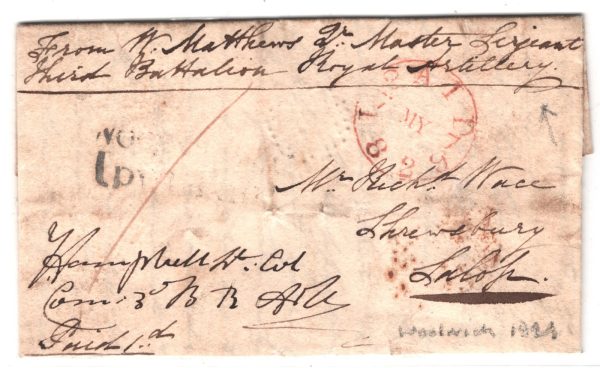 From W. Matthews Qr. Master Serjeant
Third Battalion Royal Artillery.
WOO
1 py
PAID
MY
Mr. Richd. Wace
Shrewsbury
Salop.
Campbell Lt. Col
Com. 3d B R Art
Paid 1.d
Woolwich